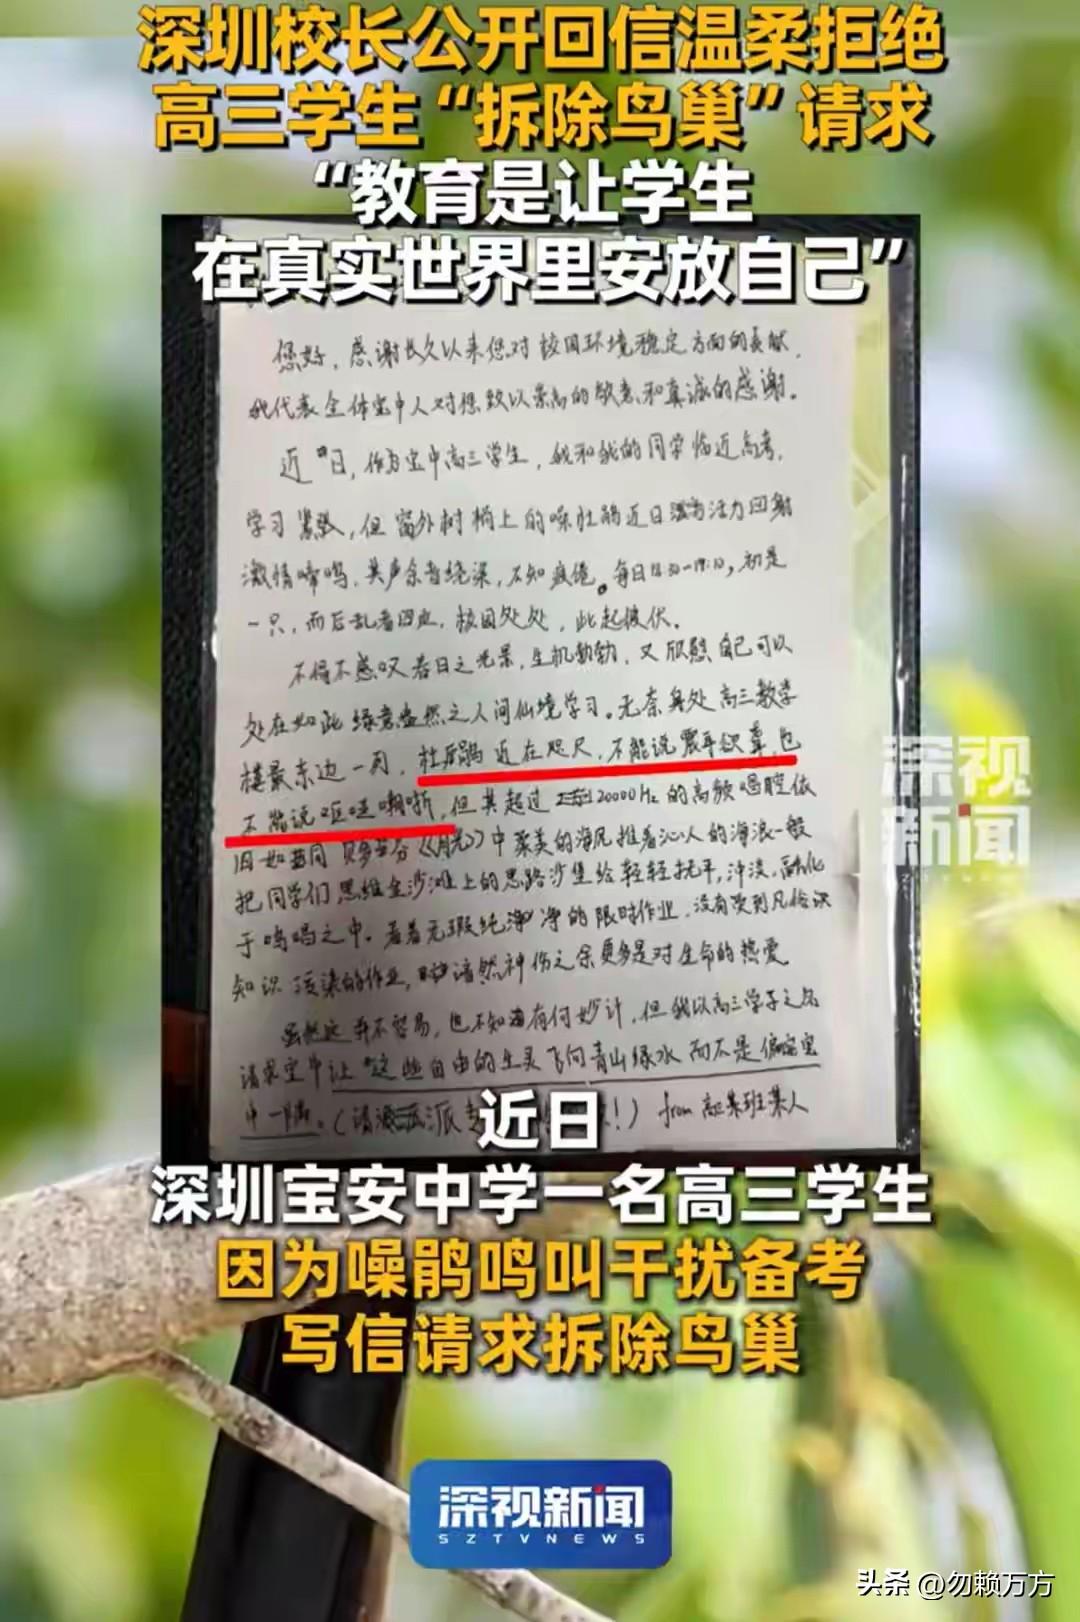 深圳校长公开回信温柔拒绝
高三学生“拆除鸟巢”请求
“教育是让学生
在真实世界里安放自己”
您好，感谢长久以来您对校园环境稳定方面的贡献，
我代表全体宝中人对您致以崇高的敬意和真诚的感谢。
近日，作为宝中高三学生，我和我的同学临近高考，
学习紧张，但窗外树梢上的噪杜鹃近日
激情啼鸣，其声余音绕梁，不知疲倦。每日
一只，而后乱者四应，校园处处，此起彼伏。
不得不感叹春日之光景，生机勃勃，又欣慰自己可以
处在如此绿意盎然之人间仙境学习。无奈身处高三教学
楼最东边一周，杜鹃近在咫尺，不能说震耳欲聋，也
不能说呕哑嘲哳，但其超过20000Hz的高频唱腔依
旧如同贝多芬《月光》中柔美的海风推着沁人的海浪一般
把同学们思维金沙滩上的思路沙堡给轻轻抚平，冲淡，
于鸣唱之中。看着无瑕纯净的限时作业，没有受到凡俗
知识污染的作业，黯然神伤之余更多是对生命的热爱
虽然这并不容易，也不知有何妙计，但我以高三学子之名
请求宝中让这些自由的生灵飞向青山绿水而不是偏安宝
中一隅。（请 派 ！）from 高三某班某人
深视
新闻
SZTVNEWS
近日
深圳宝安中学一名高三学生
因为噪鹃鸣叫干扰备考
写信请求拆除鸟巢
深视新闻
SZTVNEWS
头条 @勿赖万方